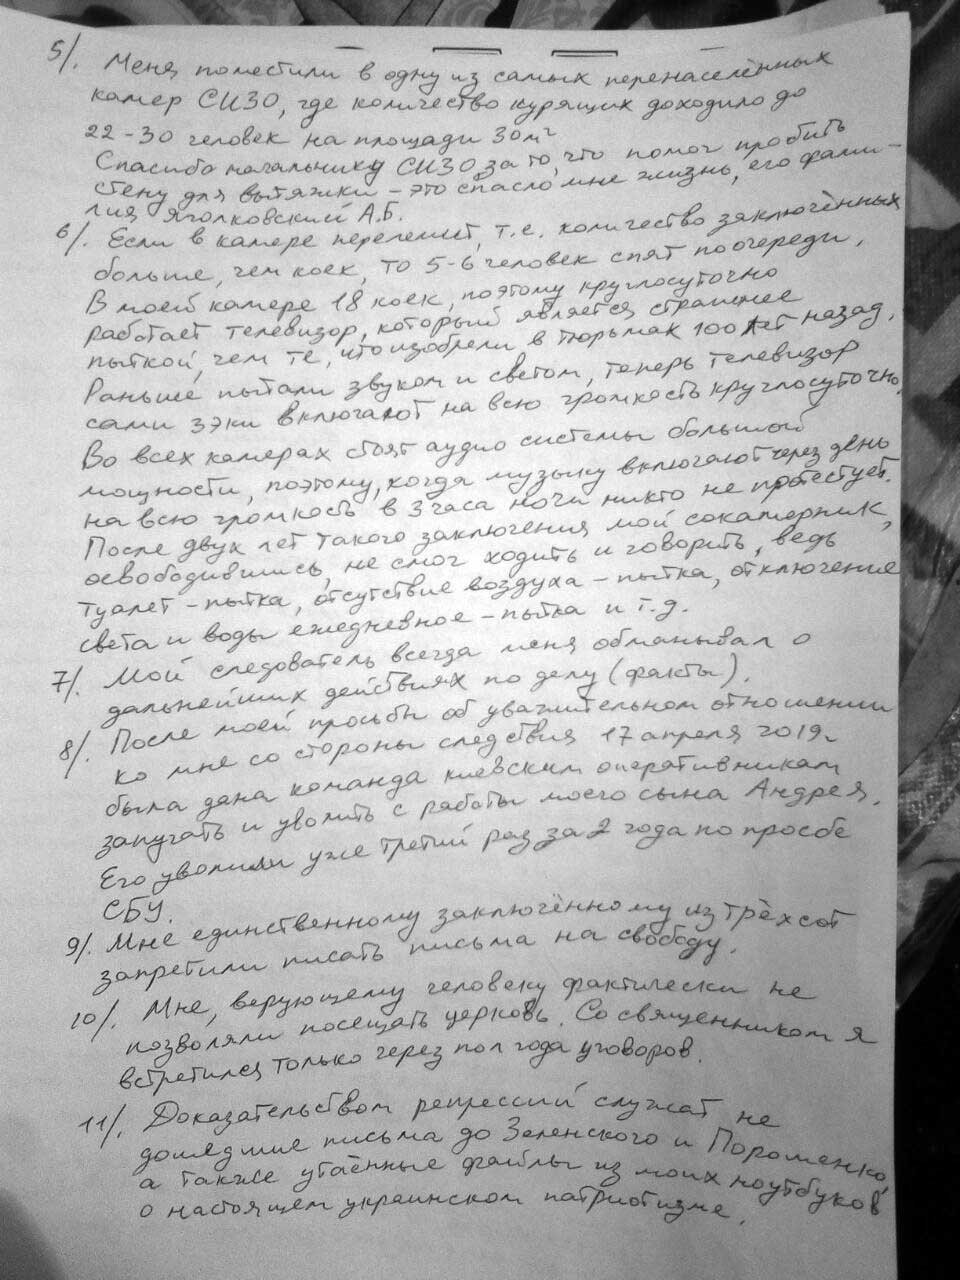 5/. Меня поместили в одну из самых перенаселённых
камер СИЗО, где количество курящих доходило до
22-30 человек на площади 30м²
Спасибо начальнику СИЗО за то, что помог пробить
стену для вытяжки - это спасло мне жизнь, его фами-
лия Яголковский А.Б.
6/. Если в камере перелемит, т.е. количество заключённых
больше, чем коек, то 5-6 человек спят поочереди.
В моей камере 18 коек, поэтому круглосуточно
работает телевизор, который является страшнее
пыткой, чем те, что изобрели в тюрьмах 100 лет назад.
Раньше пытали звуком и светом, теперь телевизор
сами зэки включают на всю громкость круглосуточно.
Во всех камерах стоят аудио системы большой
мощности, поэтому, когда музыку включают через день
на всю громкость в 3 часа ночи никто не протестует.
После двух лет такого заключения мой сокамерник,
освободившись, не смог ходить и говорить, ведь
туалет - пытка, отсутствие воздуха - пытка, отключение
света и воды ежедневное - пытка и т.д.
7/. Мой следователь всегда меня обманывал о
дальнейших действиях по делу (факты).
8/. После моей просьбы об уважительном отношении
ко мне со стороны следствия 17 апреля 2019г.
была дана команда киевским оперативникам
запугать и уволить с работы моего сына Андрея.
Его уволили уже третий раз за 2 года по просбе
СБУ.
9/. Мне единственному заключённому из трёхсот
запретили писать письма на свободу.
10/. Мне, верующему человеку фактически не
позволяли посещать церковь. Со священником я
встретился только через пол года уговоров.
11/. Доказательством репрессий служат не
дошедшие письма до Зеленского и Порошенко,
а также утаённые файлы из моих ноутбуков
о настоящем украинском патриотизме.